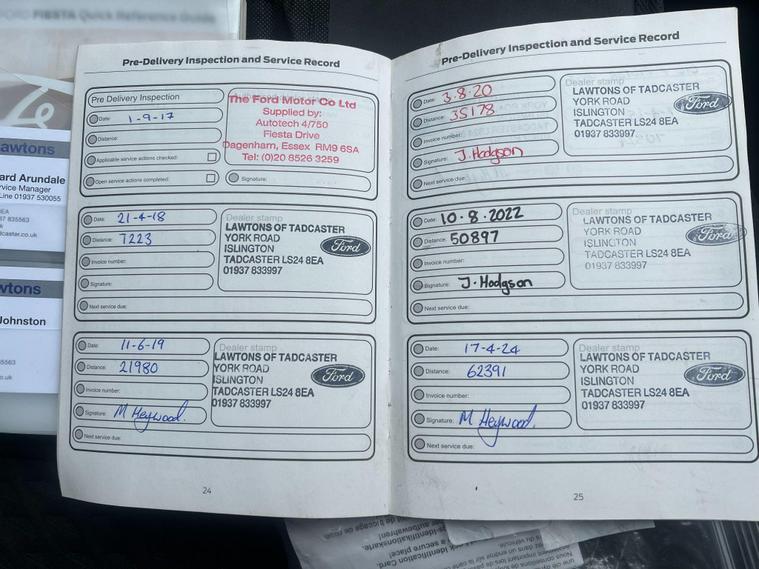 FIESTA Quick Reference Guide
Lawtons
ard Arundale
rvice Manager
Line 01937 530055
37 835563
dcaster.co.uk
wtons
Johnston
5563
co.uk
Pre-Delivery Inspection and Service Record
Pre Delivery Inspection
Date: 1-9-17
Distance:
Applicable service actions checked:
Open service actions completed:
The Ford Motor Co Ltd
Supplied by:
Autotech 4/750
Fiesta Drive
Dagenham, Essex RM9 6SA
Tel: (0)20 8526 3259
Signature:
Date: 21-4-18
Distance: 7223
Invoice number:
Signature:
Next service due:
Dealer stamp
LAWTONS OF TADCASTER
YORK ROAD
ISLINGTON
TADCASTER LS24 8EA
01937 833997
Ford
Date: 11-6-19
Distance: 21980
Invoice number:
Signature: M Heywood.
Next service due:
Dealer stamp
LAWTONS OF TADCASTER
YORK ROAD
ISLINGTON
TADCASTER LS24 8EA
01937 833997
Ford
24
Pre-Delivery Inspection and Service Record
Date: 3.8.20
Distance: 35178
Invoice number:
Signature: J. Hodgson
Next service due:
Dealer stamp
LAWTONS OF TADCASTER
YORK ROAD
ISLINGTON
TADCASTER LS24 8EA
01937 833997
Ford
Date: 10.8.2022
Distance: 50897
Invoice number:
Signature: J. Hodgson
Next service due:
Dealer stamp
LAWTONS OF TADCASTER
YORK ROAD
ISLINGTON
TADCASTER LS24 8EA
01937 833997
Ford
Date: 17-4-24
Distance: 62391
Invoice number:
Signature: M Heywood.
Next service due:
Dealer stamp
LAWTONS OF TADCASTER
YORK ROAD
ISLINGTON
TADCASTER LS24 8EA
01937 833997
Ford
25